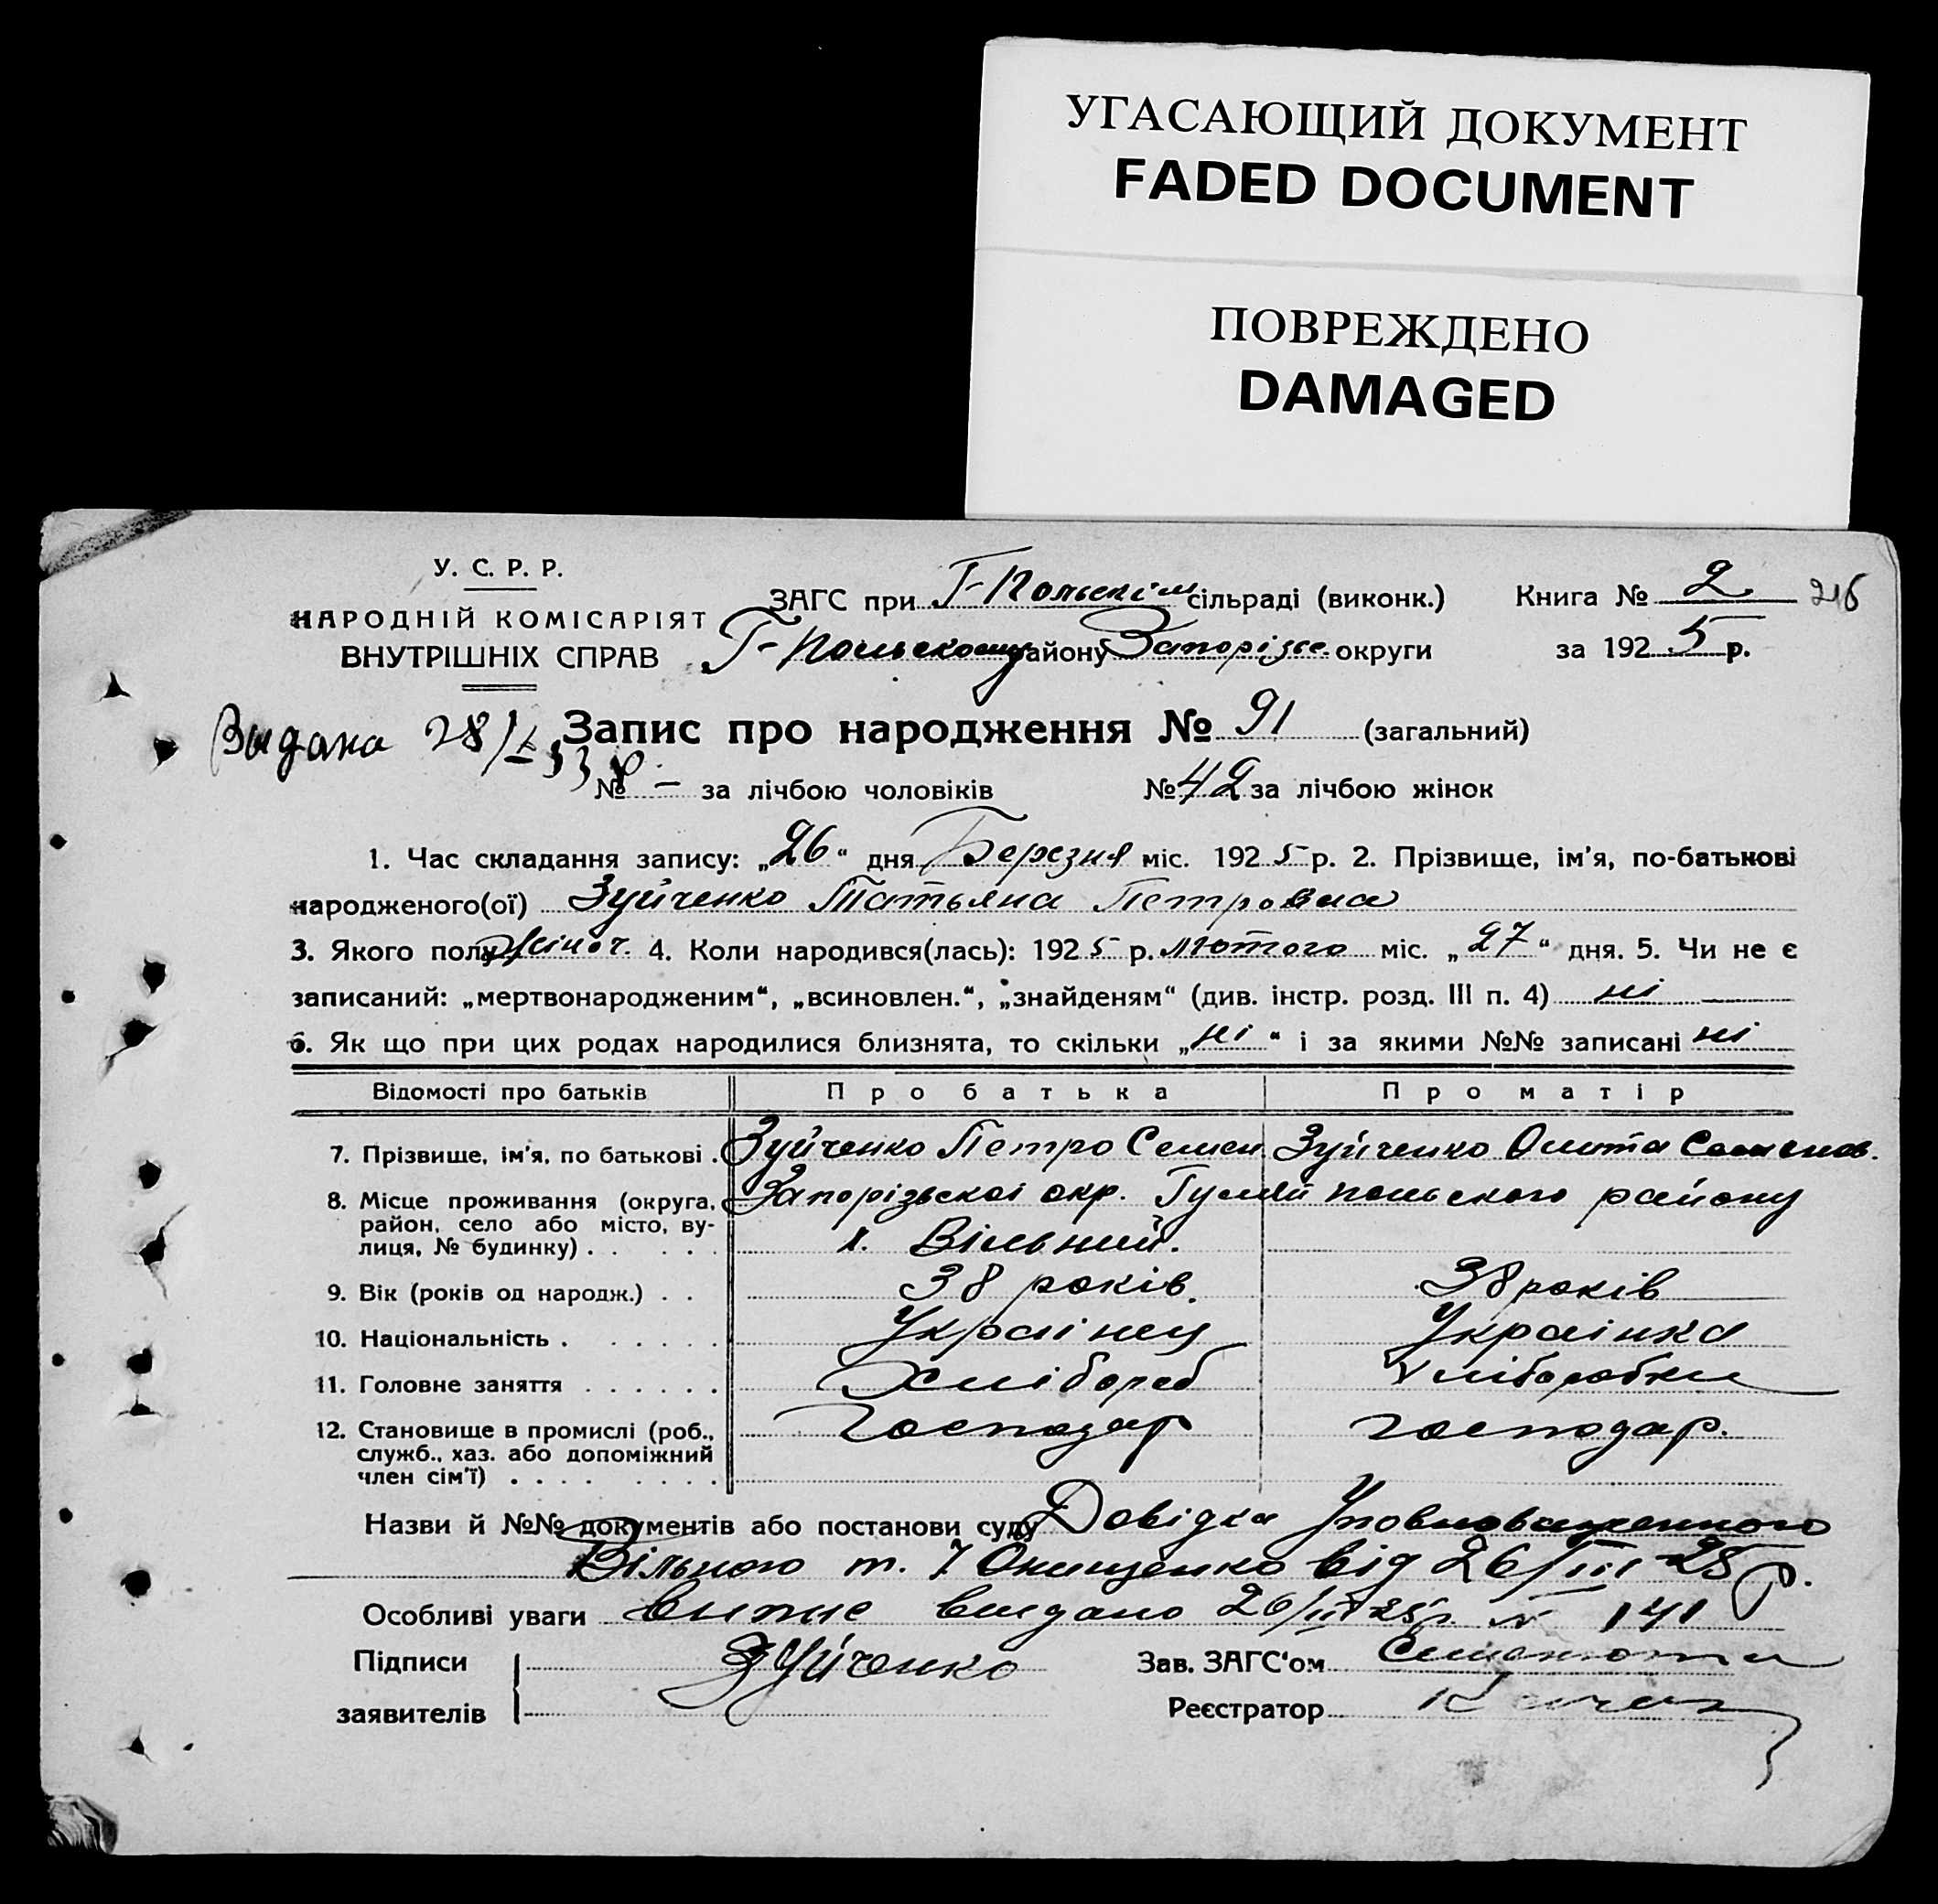 УГАСАЮЩИЙ ДОКУМЕНТ
FADED DOCUMENT
ПОВРЕЖДЕНО
DAMAGED
У. С. Р. Р.
НАРОДНІЙ КОМІСАРІЯТ
ВНУТРІШНІХ СПРАВ
ЗАГС при Г-Польскім сільраді (виконк.) Книга № 2 216
Г-Польскому району Запорізьс. округи за 1925 р.
Выдана 28/ 33
Запис про народження № 91 (загальний)
№ – за лічбою чоловіків № 42 за лічбою жінок
1. Час складання запису: „26“ дня Березня міс. 1925 р. 2. Прізвище, ім'я, по-батькові
народженого(ої) Зуйченко Татьяна Петровна
3. Якого полу жіноч. 4. Коли народився(лась): 1925 р. лютого міс. „27“ дня. 5. Чи не є
записаний: „мертвонародженим“, „всиновлен.“, „знайденям“ (див. інстр. розд. III п. 4) ні
6. Як що при цих родах народилися близнята, то скільки „ні“ і за якими №№ записані ні
Відомості про батьків Про батька Про матір
7. Прізвище, ім'я, по батькові . Зуйченко Петро Семен. Зуйченко Семенов.
8. Місце проживання (округа, Запорізьскоі окр. Гуляй польского району
район, село або місто, ву-
лиця, № будинку) . . . . . х. Вільний.
9. Вік (років од народж.) . . 38 років. 38 років
10. Національність . . . . . . Украінец Украінка
11. Головне заняття . . . . . . Хлібороб Хліборобка
12. Становище в промислі (роб., господар господар.
служб., хаз. або допоміжний
член сім'ї) . . . . . . . .
Назви й №№ документів або постанови суду Довідка Уповноваженного
Вільного т. Онищенко від 26/III-25 р.
Особливі уваги выпис выдано 26/III 25 р. № 141
Підписи Зуйченко Зав. ЗАГС'ом
заявителів Реєстратор